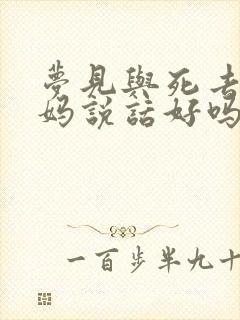 夢見與死去
妈說話好吗
一百步半九十